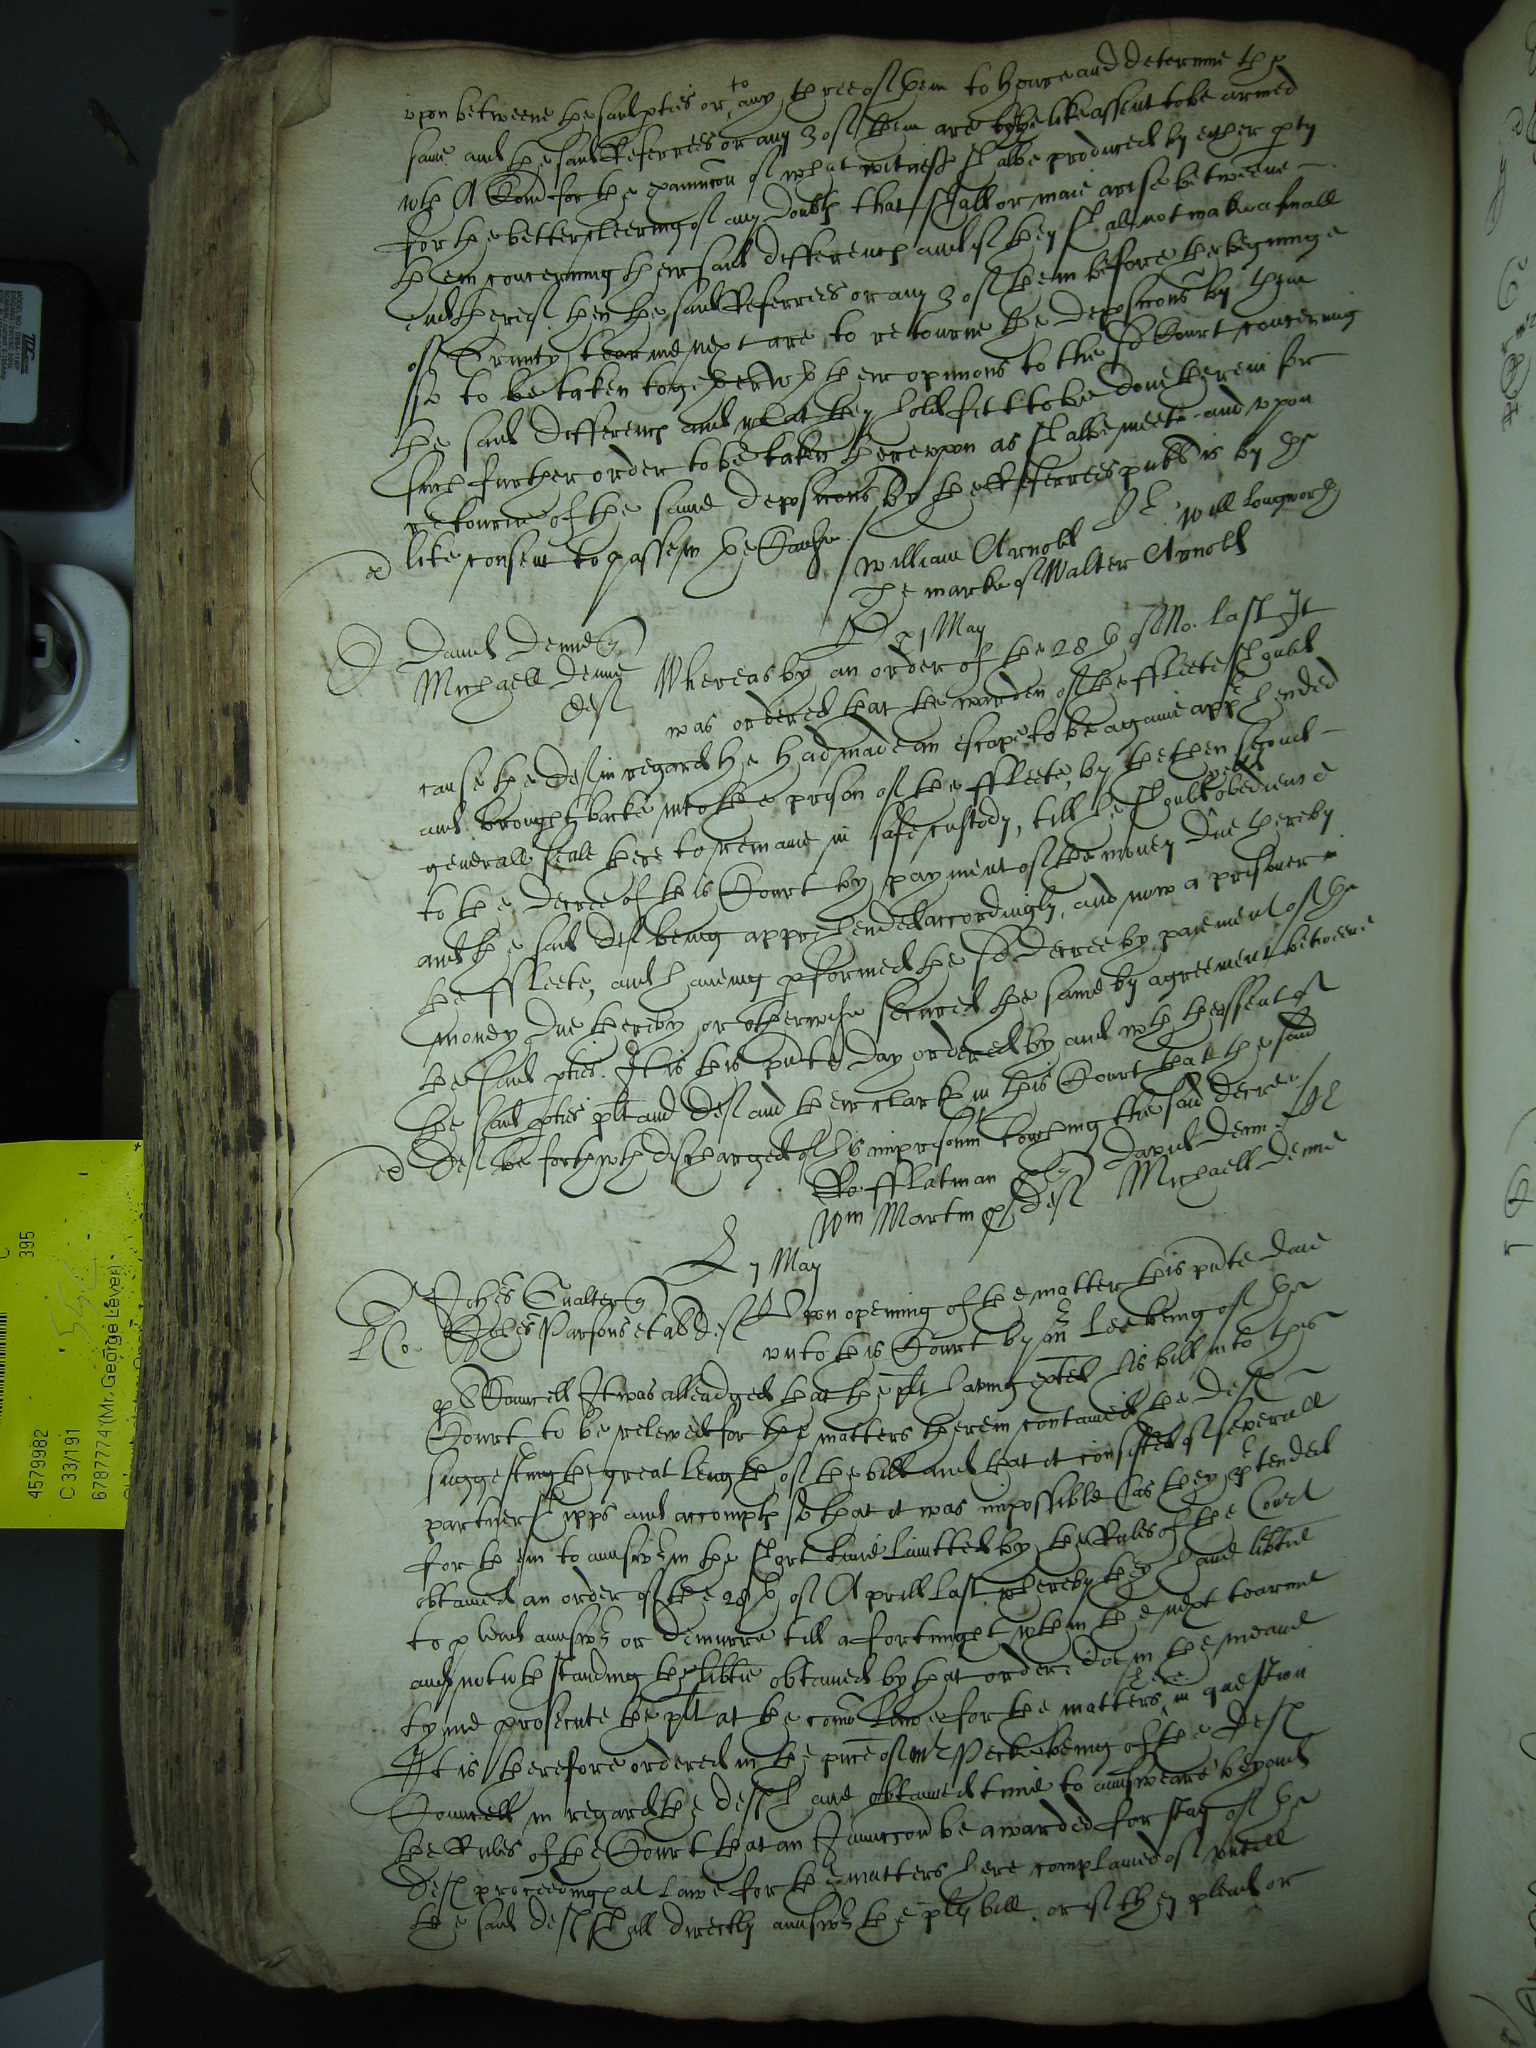 vpon betweene the said pties or to any three of them to heare and determine the
same and the said Referrees or any 3 of them are by the like assent to be armed
wth A Comi for the examinacon of what witnesses shalbe produced by either pty
for the better cleering of any doubts that shall or maie arise betweene
them concerning their said differences and if they shall not make a finall
end thereof then the said Referrees or any 3 of them before the begininge
of Trinity tearme next are to retourne the deposicons by them
so to be taken together wth their opinions to the sd Court concerning
the said differences and what they hold fitt to be done therein for
such further order to be taken therevpon as shalbe meete and vpon
retourne of the same deposicons by the Referrees publ is by the
like consent to passe in the Cause
William Arnold Will Longworth
The marke of Walter Arnold
7 May
David Denne q
Michaell Denne def
Whereas by an order of the 28th of No. last It
was ordered that the warden of the ffleete should
cause the def in regard he had made an escape to be againe apprhended
and brought backe into the prison of the ffleete, by the then second
generall seale here to remaine in safe custody, till he should yeeld obedience
to the decree of this Court by payment of the money due thereby
and the said def being apprhended accordingly, and now a prisoner in
the ffleete, and haveing pformed the sd decree by paiement of the
money due thereby or otherwise secured the same by agreement betweene
the said pties. It is this pnte day ordered by and wth the assent of
the said pties plt and def and their clarks in this Court that the said
def be forthwth discharged of his imprisonmt touching the said decree
Ro: fflatman p q David Denne
Wm Martin p def Michaell Denne
7 May
Johes Gualter q
Johes Parsons et al def
Vpon opening of the matter this pnte daie
vnto this Court by mr Lee being of the
pl Councell It was alleadged that the plt having exhted his bill into this
Court to be releived for the matters therein contained the defts
suggesting the great length of the bill and that it consisted of severall
partnershipps and accompts so that it was impossible (as they prtended
for them to answr in the short time limitted by the Rules of the Court
obtained an order of the 28th of Aprill last whereby they have libtie
to plead answr or demurre till a fortnight wthin the next tearme
and notwthstanding the libtie obtained by that order doe in the meane
tyme prosecute the plt at the comon lawe for the matters here in question
It is therefore ordered in the pnce of mr Pecke being of the defts
Councell in regard the defts have obtained time to answeare beyond
the Rules of the Court that an Iniunccon be awarded for stay of the
defts proceedings at lawe for the matters here complained of vntill
the said defts shall directly answr the plts bill, or if they plead or
4579982
C 33/191
6787774 (Mr, George Lever)
395